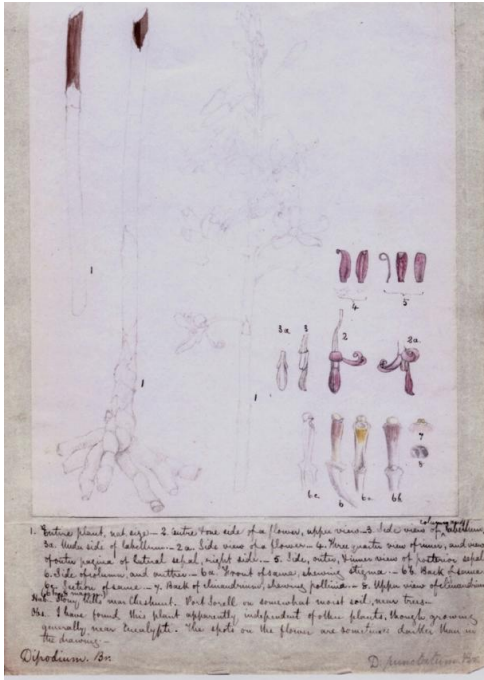 1
1
1
4
5
3a
3
2
2a
7
8
6c
6
6a
6b
1. Entire plant, nat. size — 2. entire & one side of a flower, upper view — 3. Side view of column and labellum,
3a. Under side of labellum — 2a. Side view of a flower — 4. Three quarter view of inner, and view
of outer pagina of lateral sepal, right side. — 5. Side, outer, & inner view of posterior sepal
6. Side of column, and anther — 6a. Front of same, shewing stigma — 6b. Back of same
6c. Section of same — 7. Back of clinandrium, shewing pollinia — 8. Upper view of clinandrium
Hab. Stony hills near Cheshunt. Port Sorell on somewhat moist soil, near trees —
Obs. I have found this plant apparently independent of other plants, though growing
generally near Eucalypti. The spots on the flower are sometimes darker than in
the drawing —
Dipodium. Bn
D. punctatum. Bn